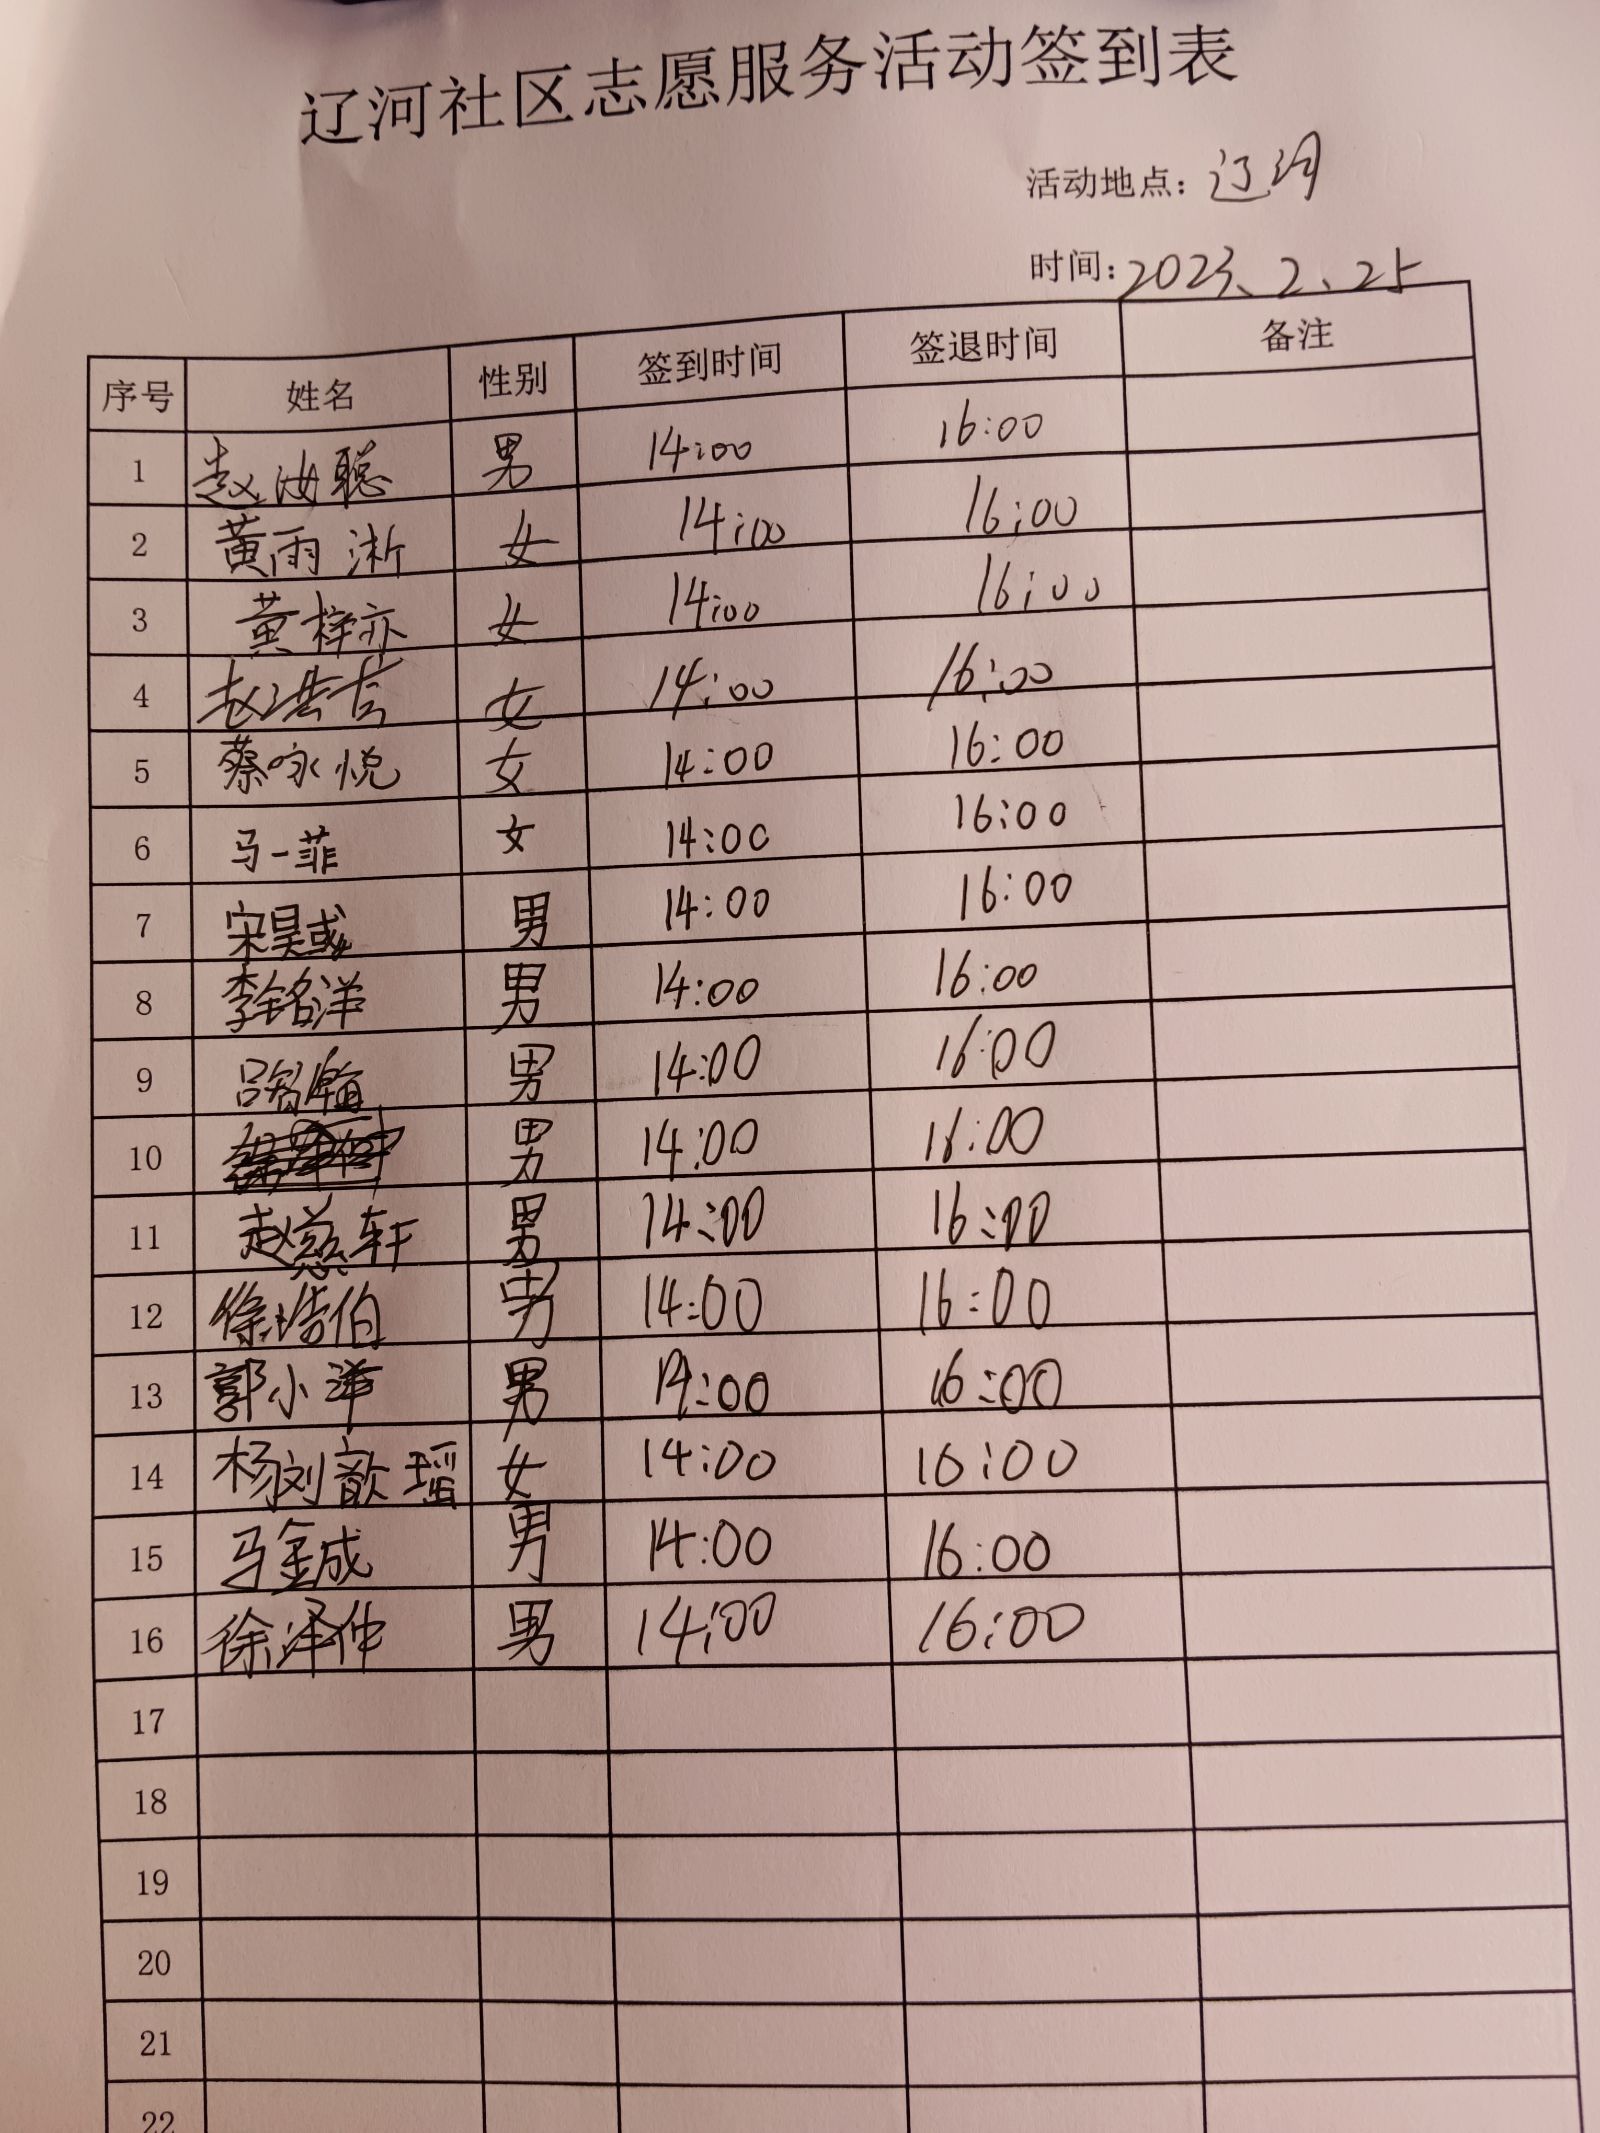 辽河社区志愿服务活动签到表
活动地点：辽河
时间：2023、2、25
序号 姓名 性别 签到时间 签退时间 备注
1 赵汝聪 男 14:00 16:00
2 黄雨淅 女 14:00 16:00
3 黄梓亦 女 14:00 16:00
4 赵 女 14:00 16:00
5 蔡咏悦 女 14:00 16:00
6 马一菲 女 14:00 16:00
7 宋昊彧 男 14:00 16:00
8 李铭洋 男 14:00 16:00
9 吕 男 14:00 16:00
10 男 14:00 16:00
11 赵慈轩 男 14:00 16:00
12 徐浩伯 男 14:00 16:00
13 郭小洋 男 14:00 16:00
14 杨刘歆瑶 女 14:00 16:00
15 马金成 男 14:00 16:00
16 徐泽仲 男 14:00 16:00
17
18
19
20
21
22